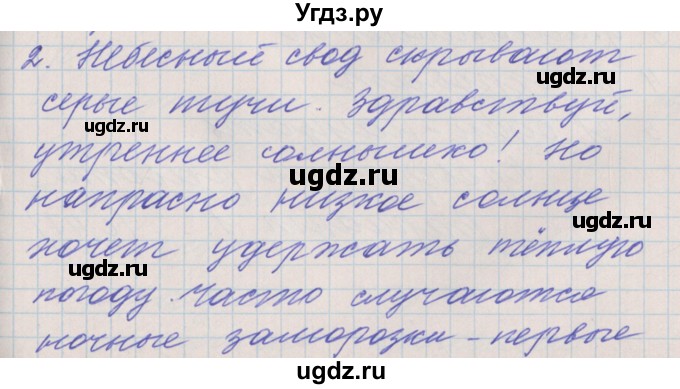 Угдз.ру
2. Небесный свод скрывают
серые тучи. Здравствуй,
утреннее солнышко! Но
напрасно низкое солнце
хочет удержать тёплую
погоду. Часто случаются
ночные заморозки - первые
ugdz.ru
ugdz.ru
ugdz.ru
ugdz.ru
ugdz.ru
ugdz.ru
ugdz.ru
ugdz.ru